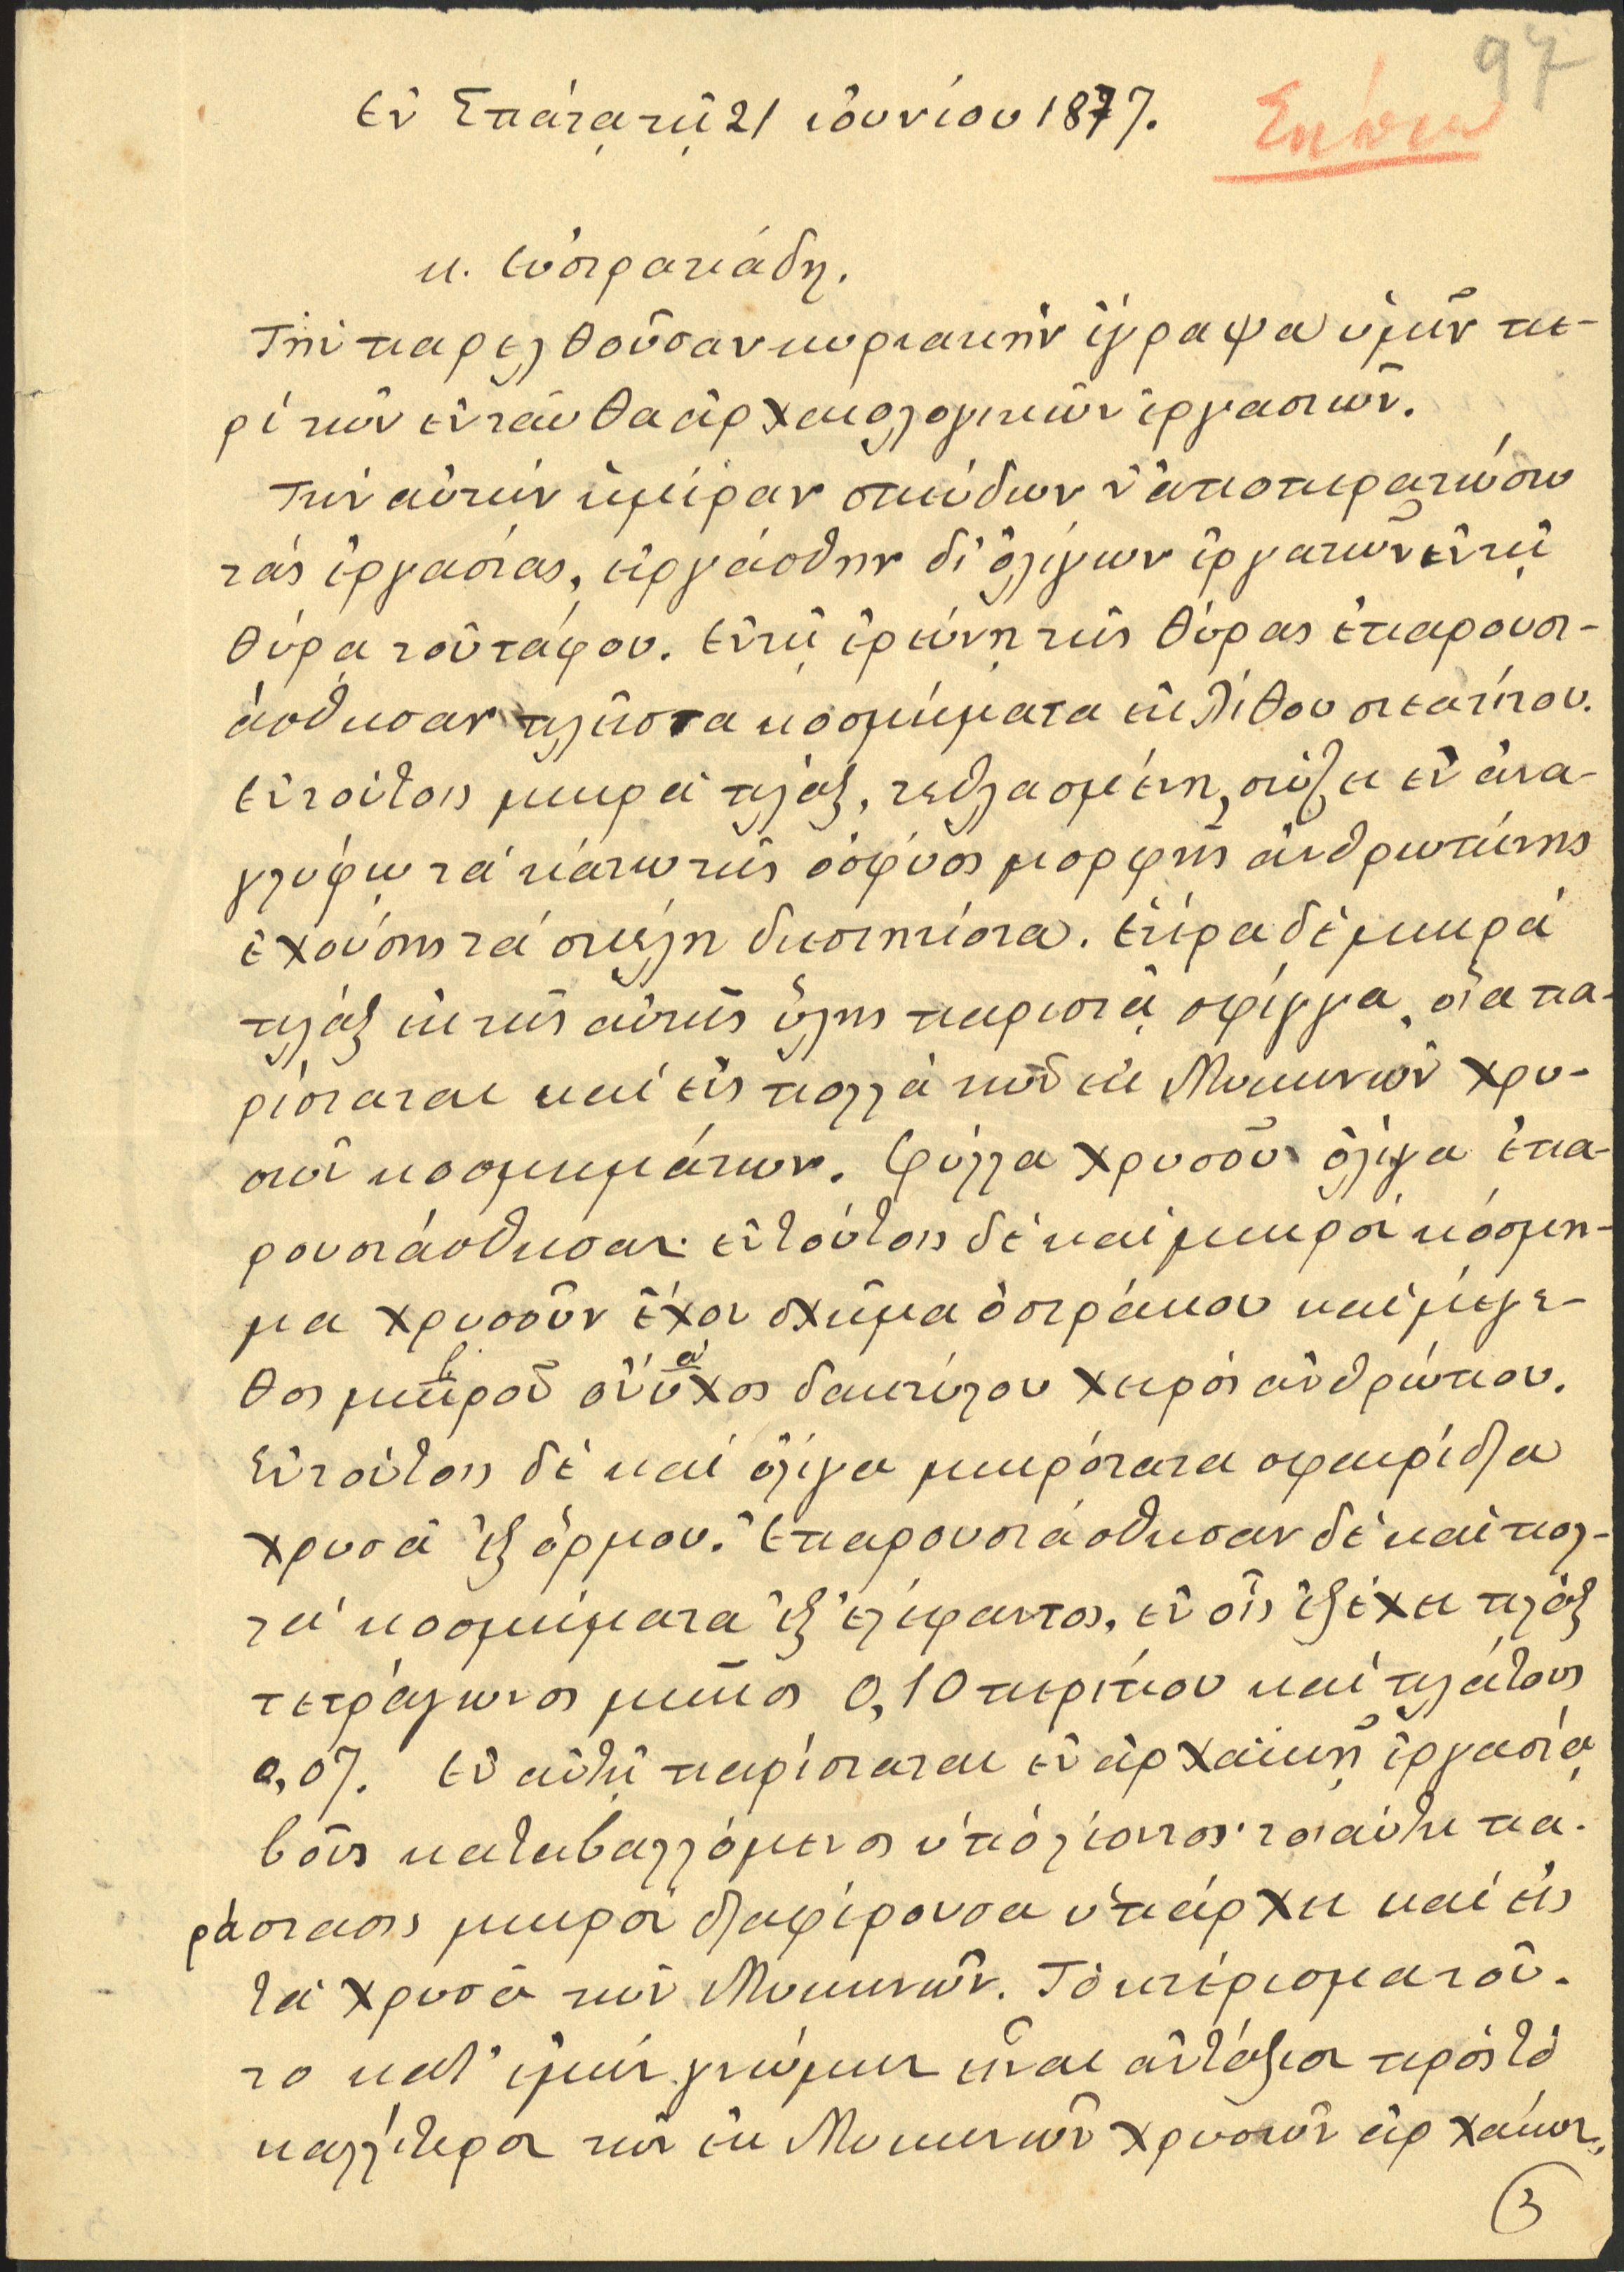 97
Ἐν Σπάτᾳ τῇ 21 ἰουνίου 1877.
κ. Εὐστρατιάδη.
Τὴν παρελθοῦσαν κυριακὴν ἔγραψα ὑμῖν πε-
ρὶ τῶν ἐνταῦθα ἀρχαιολογικῶν ἐργασιῶν.
Τὴν αὐτὴν ἡμέραν σπεύδων ν' ἀποπερατώσω
τὰς ἐργασίας, εἰργάσθην δι' ὀλίγων ἐργατῶν ἐν τῇ
θύρᾳ τοῦ τάφου. Ἐν τῇ ἐρεύνῃ τῆς θύρας ἐπαρουσι-
άσθησαν πλεῖστα κοσμήματα ἐκ λίθου στεατίτου.
Ἐν τούτοις μικρὰ πλάξ, τεθλασμένη, σώζει ἐν ἀνα-
γλύφῳ τὰ κάτω τῆς ὀσφύος μορφῆς ἀνθρωπίνης
ἐχούσης τὰ σκέλη διεστηκότα. Ἑτέρα δὲ μικρὰ
πλὰξ ἐκ τῆς αὐτῆς ὕλης παριστᾷ σφίγγα, οἵα πα-
ρίσταται καὶ εἰς πολλὰ τῶν ἐκ Μυκηνῶν χρυ-
σῶν κοσμημάτων. Φύλλα χρυσοῦ ὀλίγα ἐπα-
ρουσιάσθησαν· ἐν τούτοις δὲ καὶ μικρὸν κόσμη-
μα χρυσοῦν ἔχον σχῆμα ὀστράκου καὶ μέγε-
θος μικροῦ ὄνυχος δακτύλου χειρὸς ἀνθρώπου.
Ἐν τούτοις δὲ καὶ ὀλίγα μικρότατα σφαιρίδια
χρυσᾶ ἐξ ὅρμου. Ἐπαρουσιάσθησαν δὲ καὶ πολ-
λὰ κοσμήματα ἐξ ἐλέφαντος, ἐν οἷς ἐξέχει πλὰξ
τετράγωνος μῆκος 0,10 περίπου καὶ πλάτους
0,07. Ἐν αὐτῇ παρίσταται ἐν ἀρχαϊκῇ ἐργασίᾳ
βοῦς καταβαλλόμενος ὑπὸ λέοντος· τοιαύτη πα-
ράστασις μικρὸν διαφέρουσα ὑπάρχει καὶ εἰς
τὰ χρυσᾶ τῶν Μυκηνῶν. Τὸ κτέρισμα τοῦ-
το κατ' ἐμὴν γνώμην εἶναι ἀντάξιον πρὸς τὸ
καλλίτερον τῶν ἐκ Μυκηνῶν χρυσῶν ἀρχαίων,
3